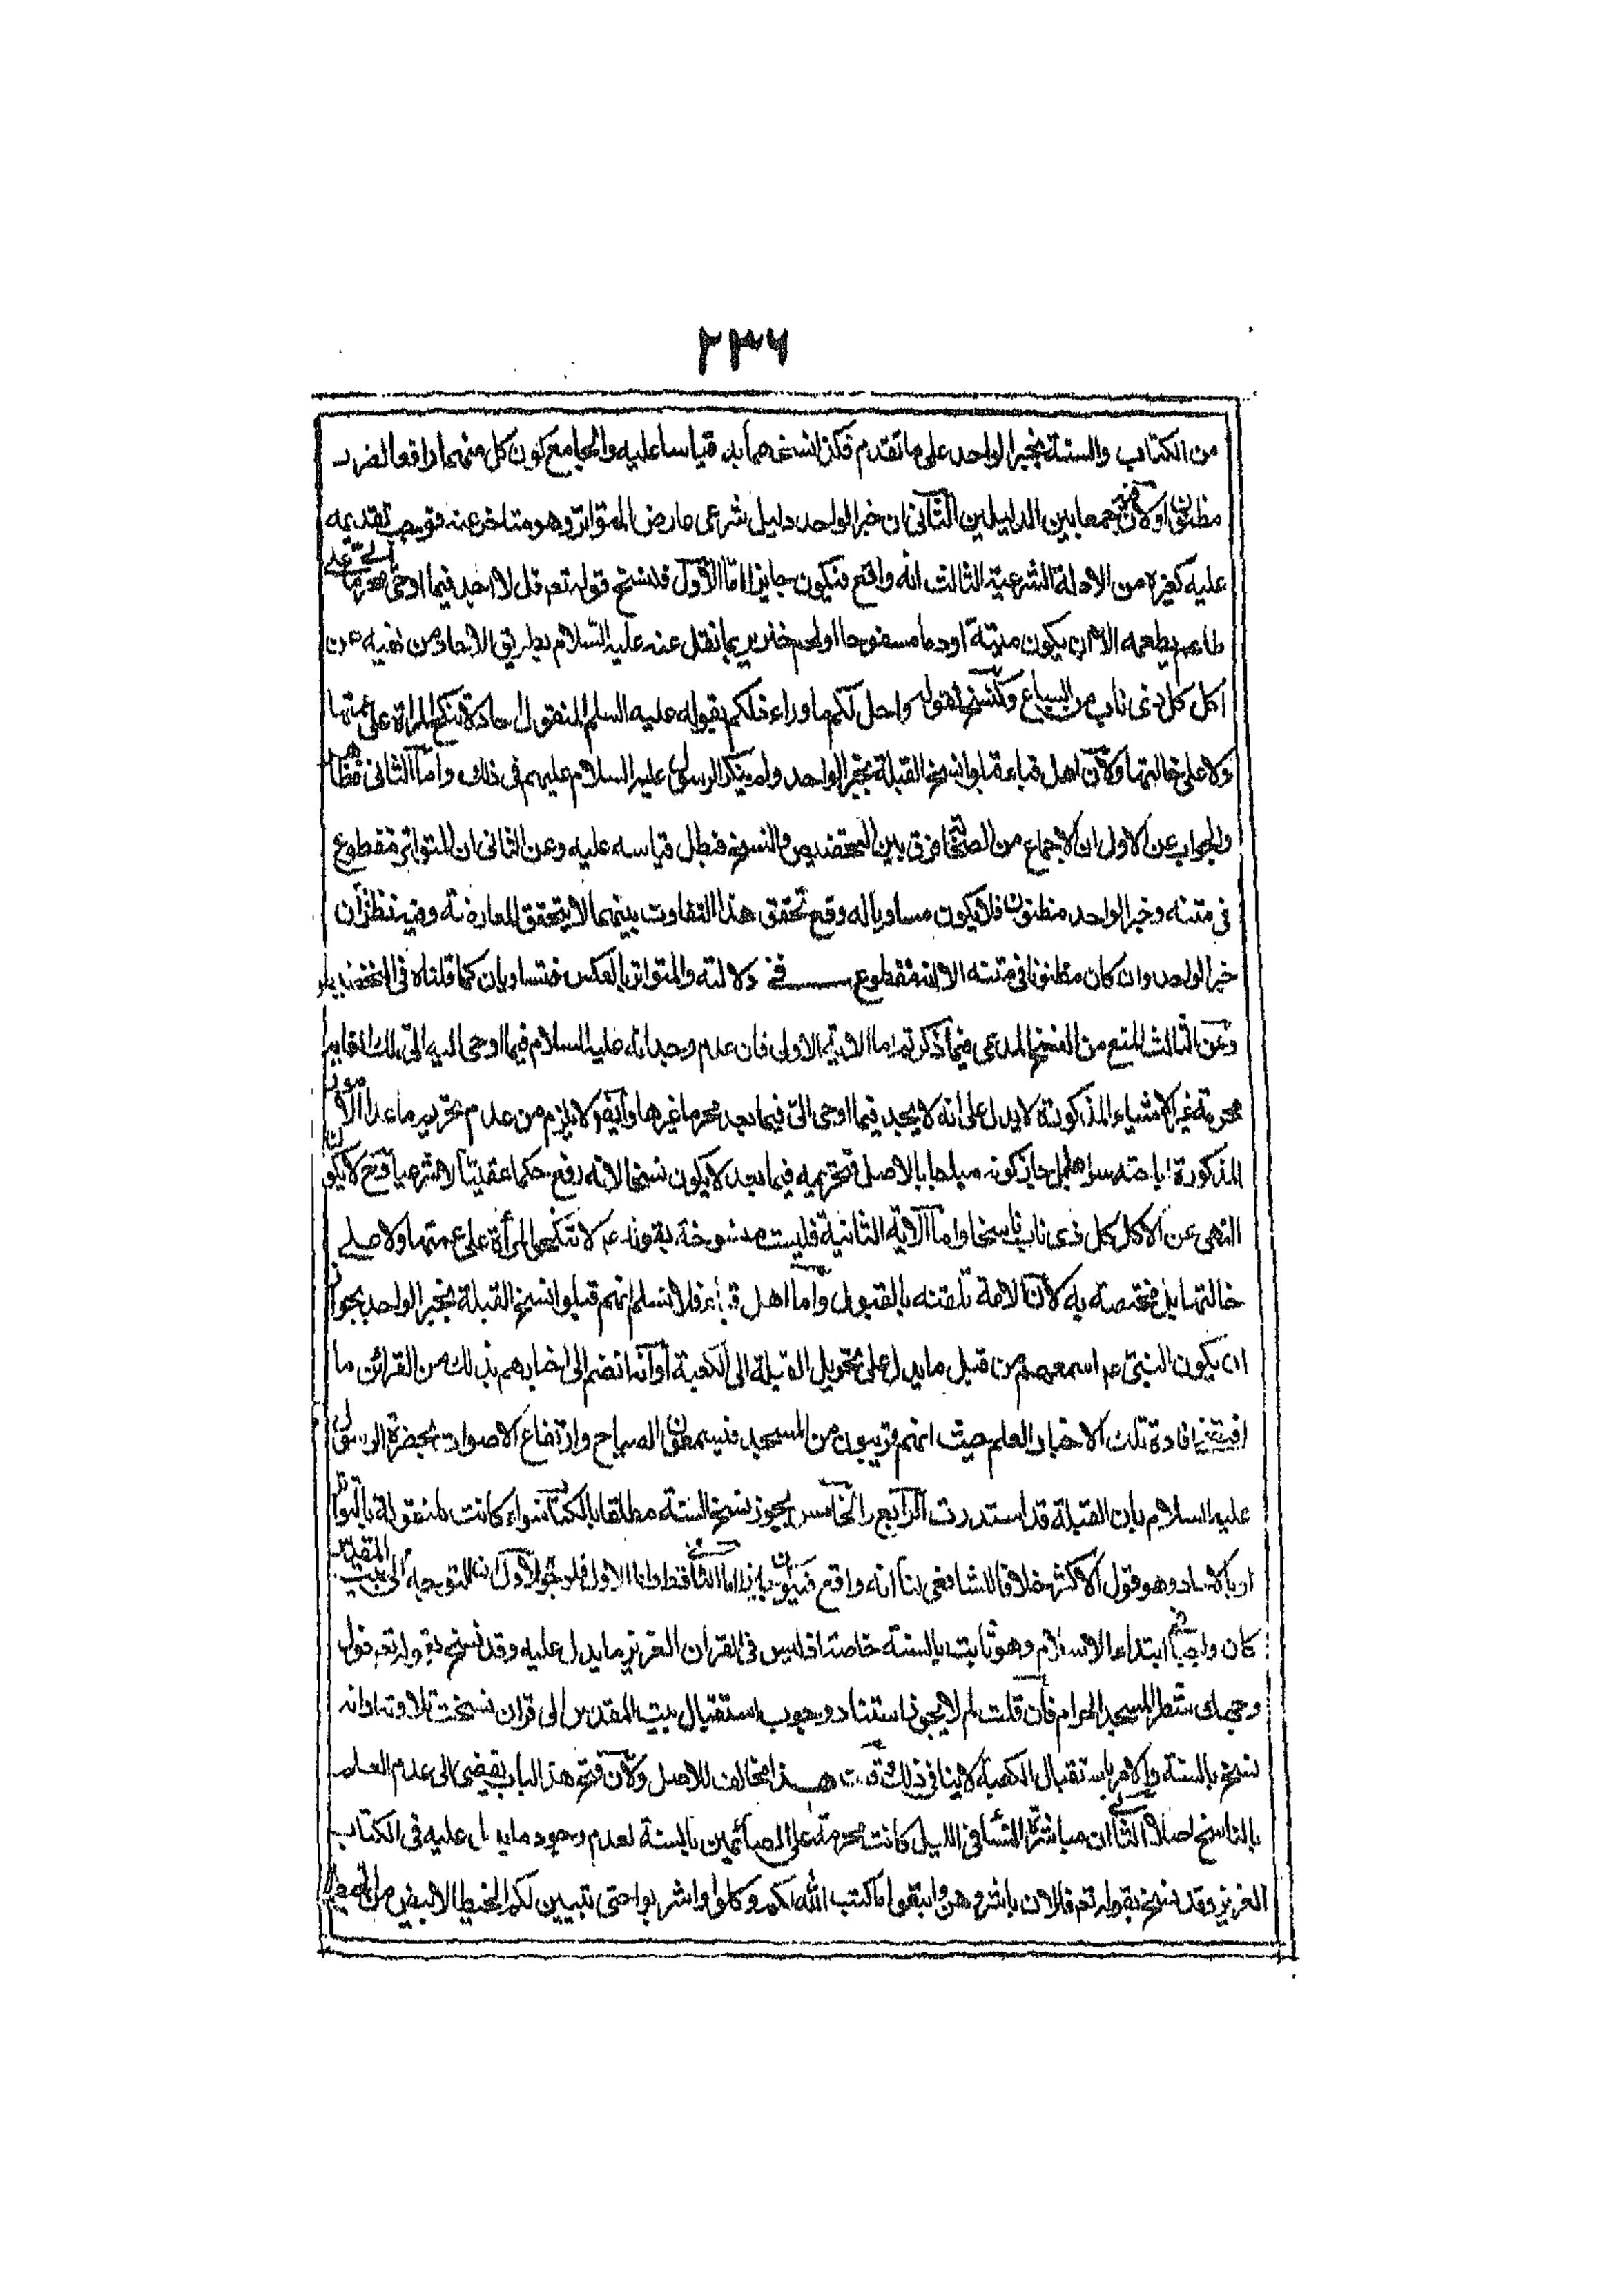 ٢٣٦
من الكتاب والسنة بخبر الواحد على ما تقدم فكذا نسخهما به قياسا عليه والجامع كون كل منهما رافعا لضرر
مظنون اولان فيه جمعا بين الدليلين الثانى ان خبر الواحد دليل شرعى عارض المتواتر وهو متاخر عنه فوجب تقديمه
عليه كغيره من الادلة الشرعية الثالث انه واقع فيكون جايزا اما الاول فلنسخ قوله تعم قل لا اجد فيما اوحى الىّ محرما على
طاعم يطعمه الا ان يكون ميتة او دما مسفوحا او لحم خنزير بما نقل عنه عليه السلام بطريق الآحاد من نهيه عن
اكل كل ذى ناب من السباع وكنسخ قوله واحل لكم ما وراء ذلكم بقوله عليه السلم المنقول احادا لا تنكح المراة على عمتها
ولا على خالتها ولان اهل قباء قبلوا نسخ القبلة بخبر الواحد ولم ينكر الرسول عليه السلام عليهم فى ذلك واما الثانى فظاهر
والجواب عن الاول ان الاجماع من الصحابة فرق بين التخصيص والنسخ فبطل قياسه عليه وعن الثانى ان المتواتر مقطوع
فى متنه وخبر الواحد مظنون فلا يكون مساويا له ومع تحقق هذا التفاوت بينهما لا يتحقق المعارضة وفيه نظر لان
خبر الواحد وان كان مظنونا فى متنه الا انه مقطوع فى دلالته والمتواتر بالعكس فتساويان كما قلناه فى التخصيص
وعن الثالث المنع من النسخ المدعى فيما ذكرتم اما الاية الاولى فان عدم وجدانه عليه السلام فيما اوحى اليه الى تلك الغاية
محرمة غير الاشياء المذكورة لا يدل على انه لا يجد فيما اوحى الىّ فيما بعد محرما غيرها وايضا لا يلزم من عدم تحريم ما عدا الامور
المذكورة اباحته شرعا لجواز كونه مباحا بالاصل فتحريمه فيما بعد لا يكون نسخا لانه رفع حكما عقليا لا شرعيا فح لا يكون
النهى عن الاكل كل ذى ناب ناسخا واما الآية الثانية فليست منسوخة بقوله عم لا تنكح المرأة على عمتها ولا على
خالتها بل مختصة به لان الامة تلقته بالقبول واما اهل قبا فلا نسلم انهم قبلوا نسخ القبلة بخبر الواحد بجواز
ان يكون النبى عم اسمعهم من قبل ما يدل على تحويل القبلة الى الكعبة او انه انضم الى اخبارهم بذلك من القرائن ما
اقتضى افادة تلك الاخبار العلم حيث انهم قريبون من المسجد فيسمعون الصياح وارتفاع الاصوات بحضرة الرسول
عليه السلام بان القبلة قد استدرت الرابع والخامس يجوز نسخ السنة مطلقا بالكتاب سواء كانت منقولة بالتواتر
او بالاحاد وهو قول الاكثر خلافا للشافعى لنا انه واقع فيكون جايزا اما الثانى فظ واما الاول فلوجوه الاول ان التوجه الى بيت المقدس
كان واجبا فى ابتداء الاسلام وهو ثابت بالسنة خاصة اذ ليس فى القران العزيز ما يدل عليه وقد نسخ بقوله تعم فول
وجهك شطر المسجد الحرام فان قلت لم لا يجوز استناد وجوب استقبال بيت المقدس الى قران نسخت تلاوته او انه
نسخ بالسنة والامر باستقبال الكعبة لا ينافى ذلك قلت هذا مخالف للاصل ولان فتح هذا الباب يقضى الى عدم العلم
بالناسخ اصلا الثانى ان مباشرة النساء فى الليل كانت محرمة على الصائمين بالسنة لعدم وجود ما يدل عليه فى الكتاب
العزيز وقد نسخ بقوله تعم فالان باشروهن وابتغوا ما كتب الله لكم وكلوا واشربوا حتى يتبين لكم الخيط الابيض من الخيط